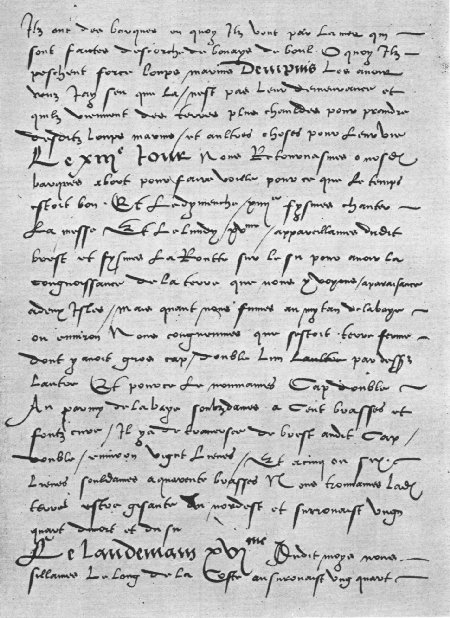 Ilz ont des barques en quoy Ilz vont par la mer qui
sont faictes descorche de bouays de boul O quoy Ilz
peschent force loups marins Dempuis Les avoir
veuz Jay seu que la / nest pas Leur demeurance et
quilz viennent des terres plus chauldes pour prandre
desditz loups marins / et aultres choses pour Leur vie
Le xiij.e Jour Nous Retournasmes o nosd
barques abort pour faire voille pour ce que Le temps
estoit bon · Et Le dymenche / xiiij.me fysmes chanter
La messe Et Le Lundy / xv.me / appareillames dudit
brest et fysmes La Routte sur Le su pour avoir La
congnoissance De La terre que nous y voyons / aparaissance
a deux Isles / mais quant nous fumes au mytan de la baye
ou environ Nous congneumes que sestoit terre ferme
dont y avoit gros cap / double Lun Laultre par dessus
Lautre Et pource Le nommames Cap double
Au parmy de la baye sondames a Cent brasses et
fontz cure / Il y a de traversse De brest audit Cap /
double / environ vignt Lieues / Et a cinq ou six
Lieues sondames a quarente brasses Nous trouvames Lad
terre estre gisante nordest et surrouaist ung
quart dunort et du su
Le landemain xvj.me Dudit moys nous
sillames Le Long de La Coste au surouaist ung quart